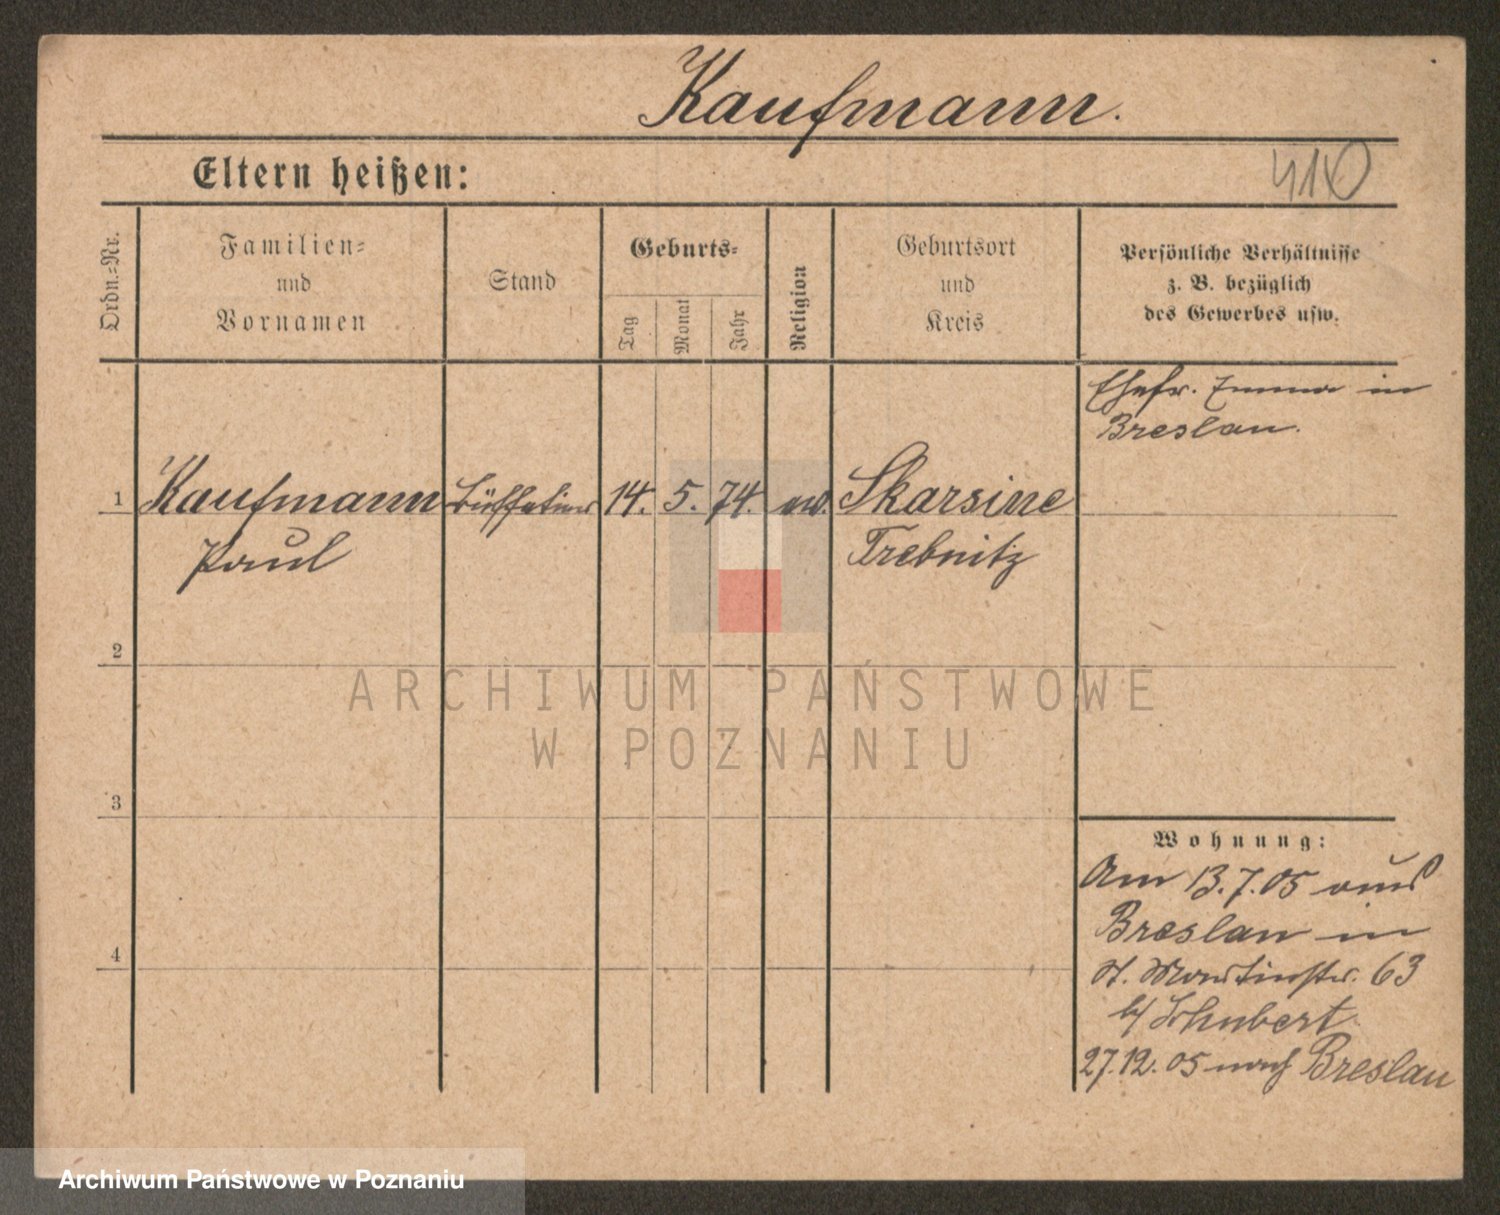 Kaufmann.
Eltern heißen:
410
Ordn.=Nr.
Familien=
und
Vornamen
Stand
Geburts=
Tag
Monat
Jahr
Religion
Geburtsort
und
Kreis
Persönliche Verhältnisse
z. B. bezüglich
des Gewerbes usw.
Ehefr. Emma in
Breslau.
1 Kaufmann 14. 5. 74. ev. Skarsine
Paul Trebnitz
2
ARCHIWUM PAŃSTWOWE
W POZNANIU
3
Wohnung:
Am 13.7.05 aus
Breslau in
4
St. Martinstr. 63
b/ Schubert
27.12.05 nach Breslau
Archiwum Państwowe w Poznaniu